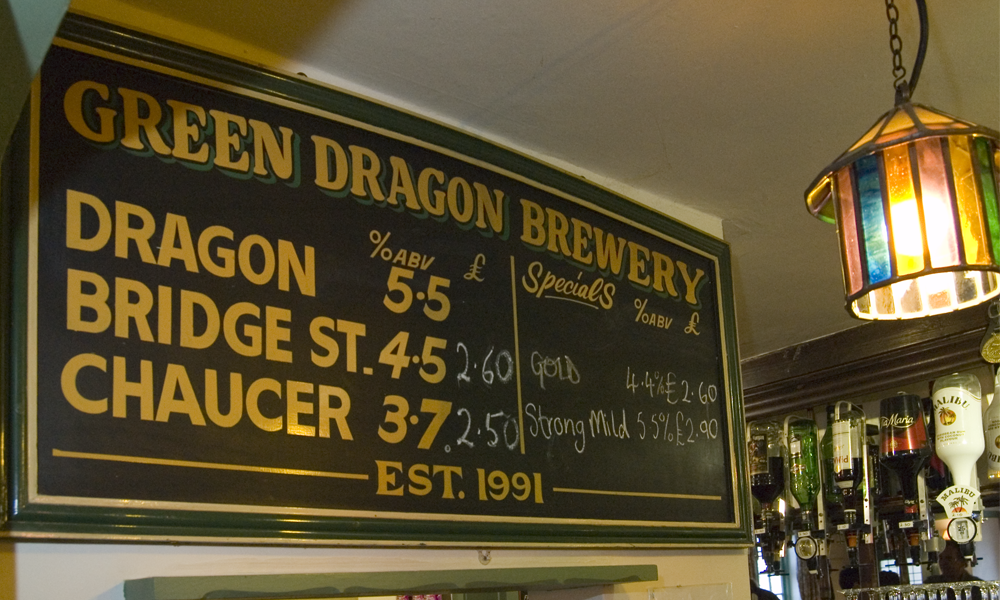 GREEN DRAGON BREWERY
%ABV £
DRAGON 5.5
BRIDGE ST. 4.5 2.60
CHAUCER 3.7 2.50
Specials
%ABV £
GOLD 4.4% £2.60
Strong Mild 5.5% £2.90
EST. 1991
MALIBU
MALIBU